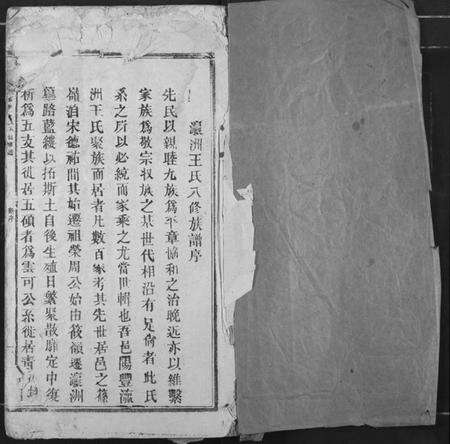 瀛洲王氏八修族譜序
先民以親睦九族爲平章協和之治晚近亦以維繫
家族爲敬宗收族之基世代相沿有足偷者此氏
系之所以必統而家乘之尤當世輯也吾邑陽豐瀛
洲王氏聚族而居者凡數百家考其先世居邑之篠
嶺泊宋德祐間其始遷祖榮周公始由篠嶺遷瀛洲
篳路藍縷以拓斯土自後生殖日繁聚散靡定中復
析爲五支其徙居五領者爲雲可公系徙居青